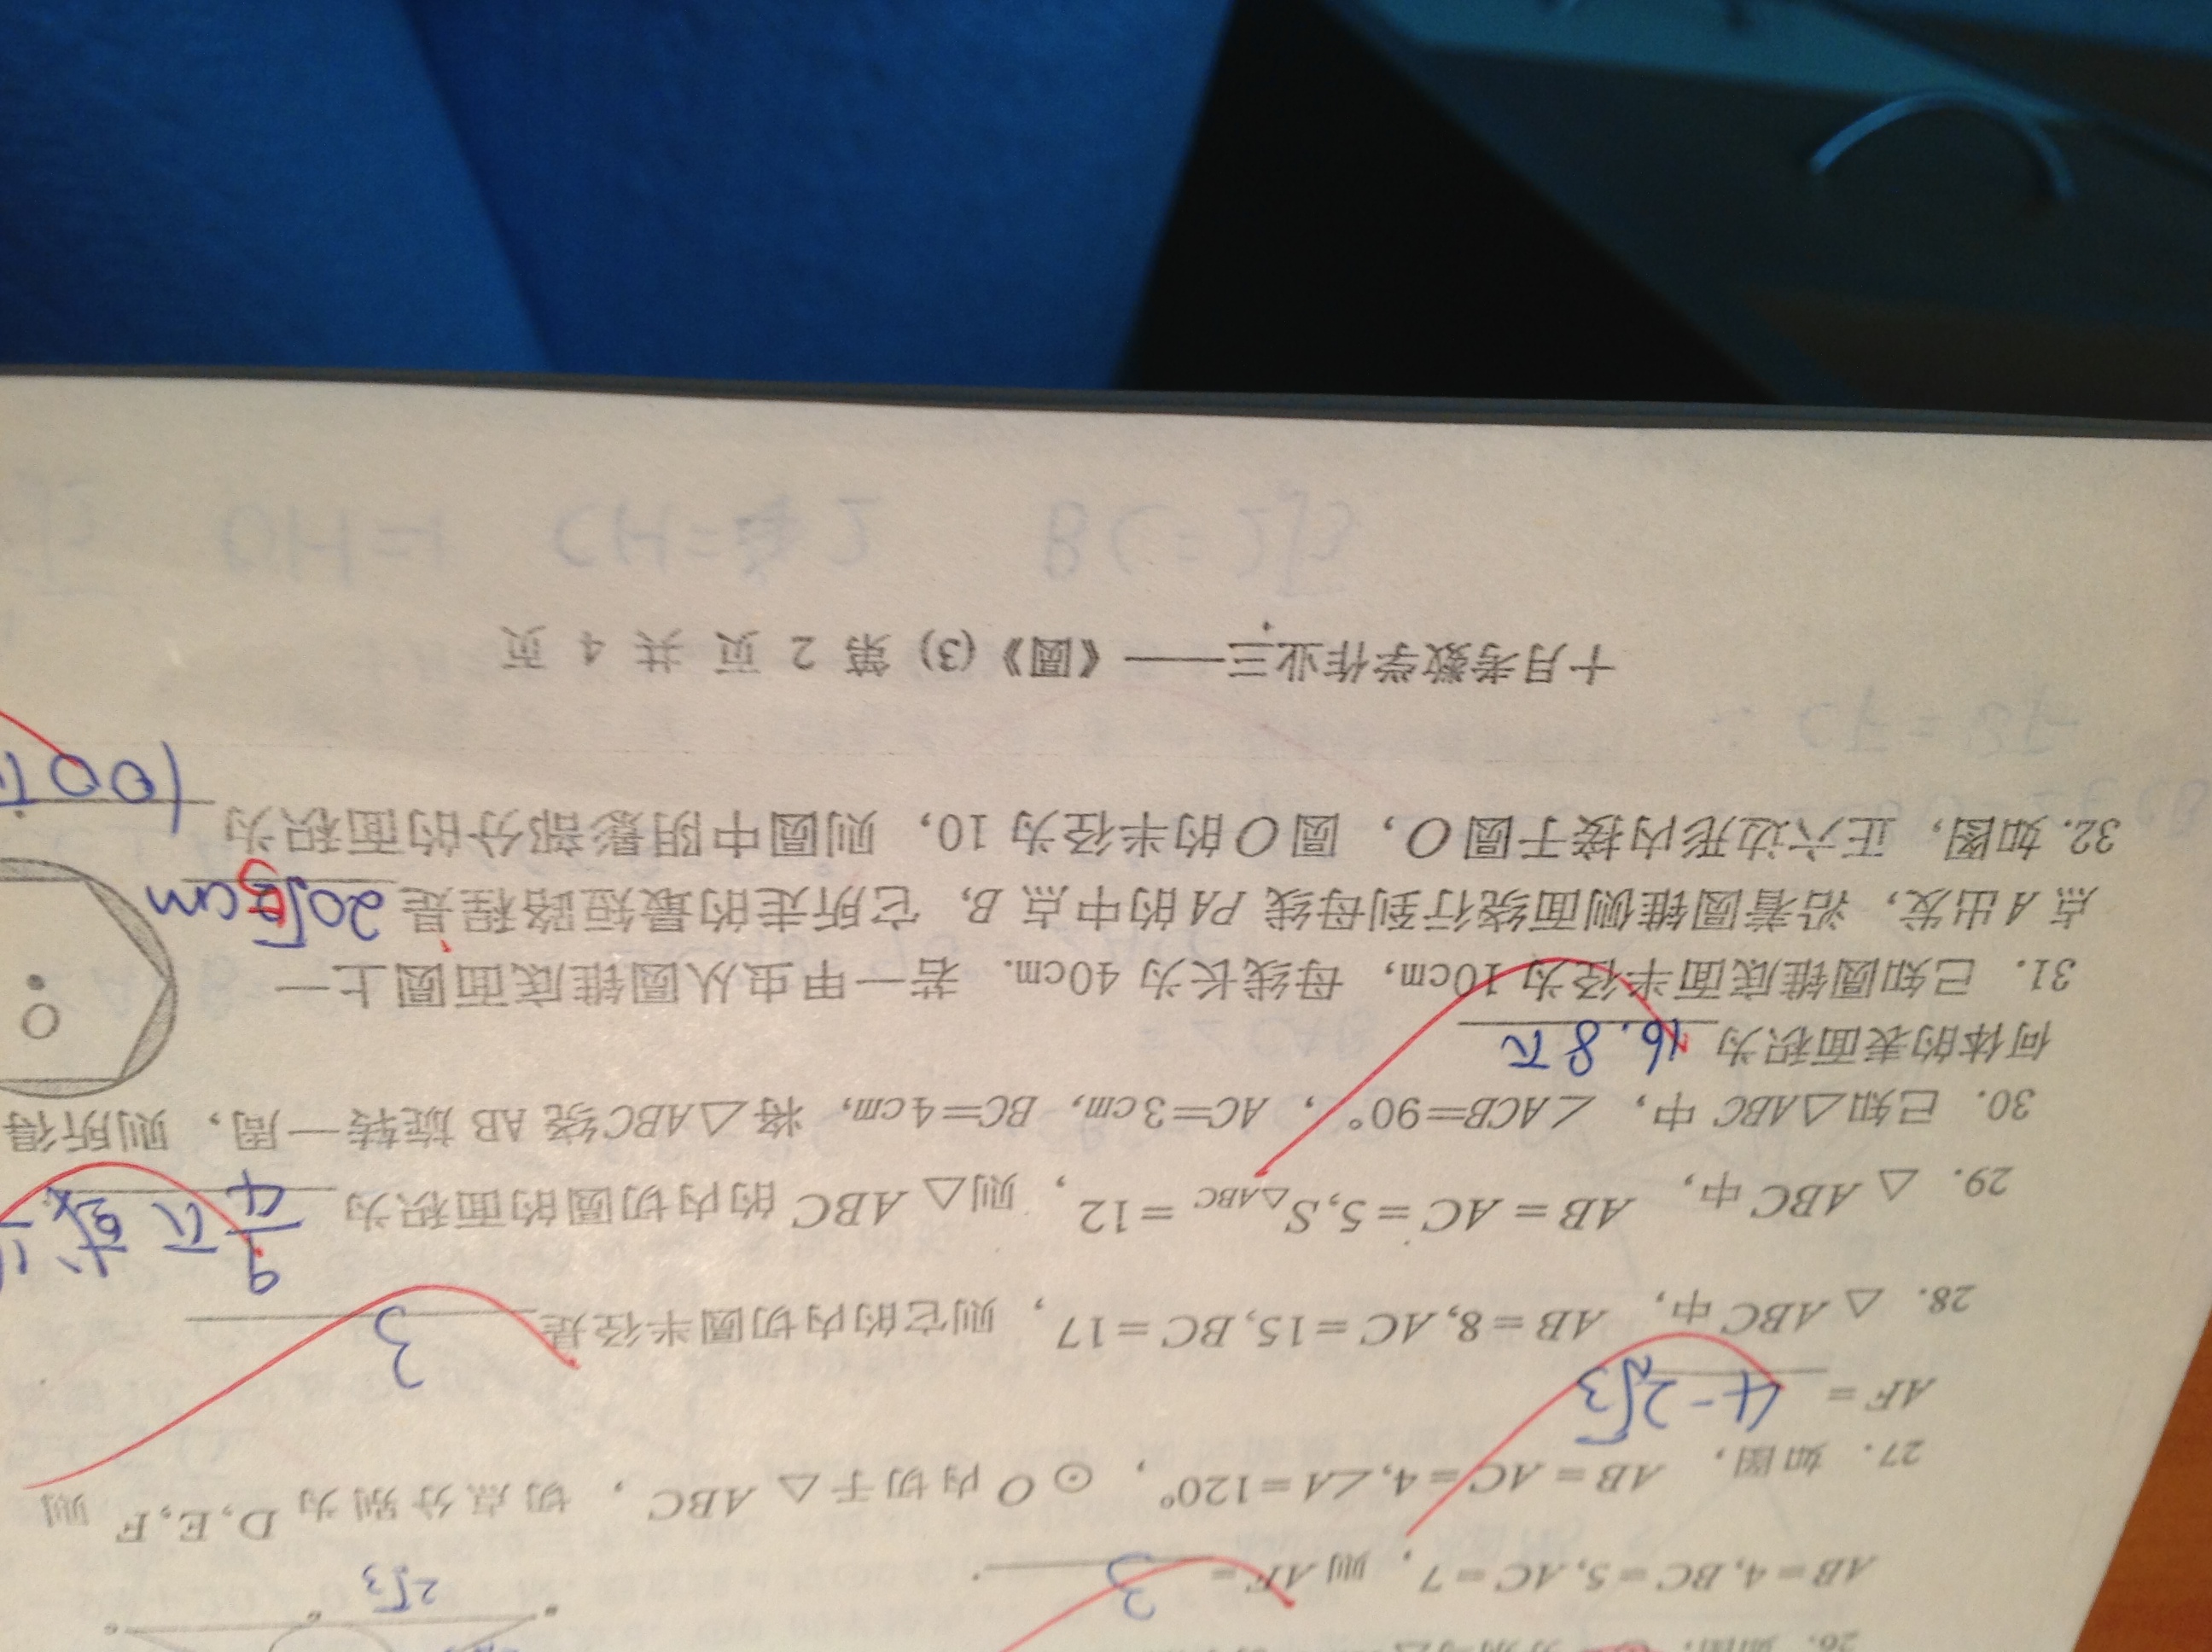 26. 如图,
2√3
AB=4, BC=5, AC=7, 则 AF= 3 .
27. 如图, AB=AC=4,∠A=120°, ⊙O内切于△ABC, 切点分别为D,E,F 则
AF= 4-2√3
28. △ABC中, AB=8, AC=15, BC=17, 则它的内切圆半径是 3
29. △ABC中, AB=AC=5, S△ABC=12, 则△ABC的内切圆的面积为 9/4 π 或
30. 已知△ABC 中, ∠ACB=90°, AC=3cm, BC=4cm, 将△ABC绕 AB 旋转一周, 则所得
何体的表面积为 16.8π
O
31. 已知圆锥底面半径为 10cm, 母线长为 40cm. 若一甲虫从圆锥底面圆上一
点 A 出发, 沿着圆锥侧面绕行到母线 PA 的中点 B, 它所走的最短路程是 20√5cm
32. 如图, 正六边形内接于圆O, 圆O的半径为 10, 则圆中阴影部分的面积为
100π
十月考数学作业三——《圆》(3) 第 2 页 共 4 页